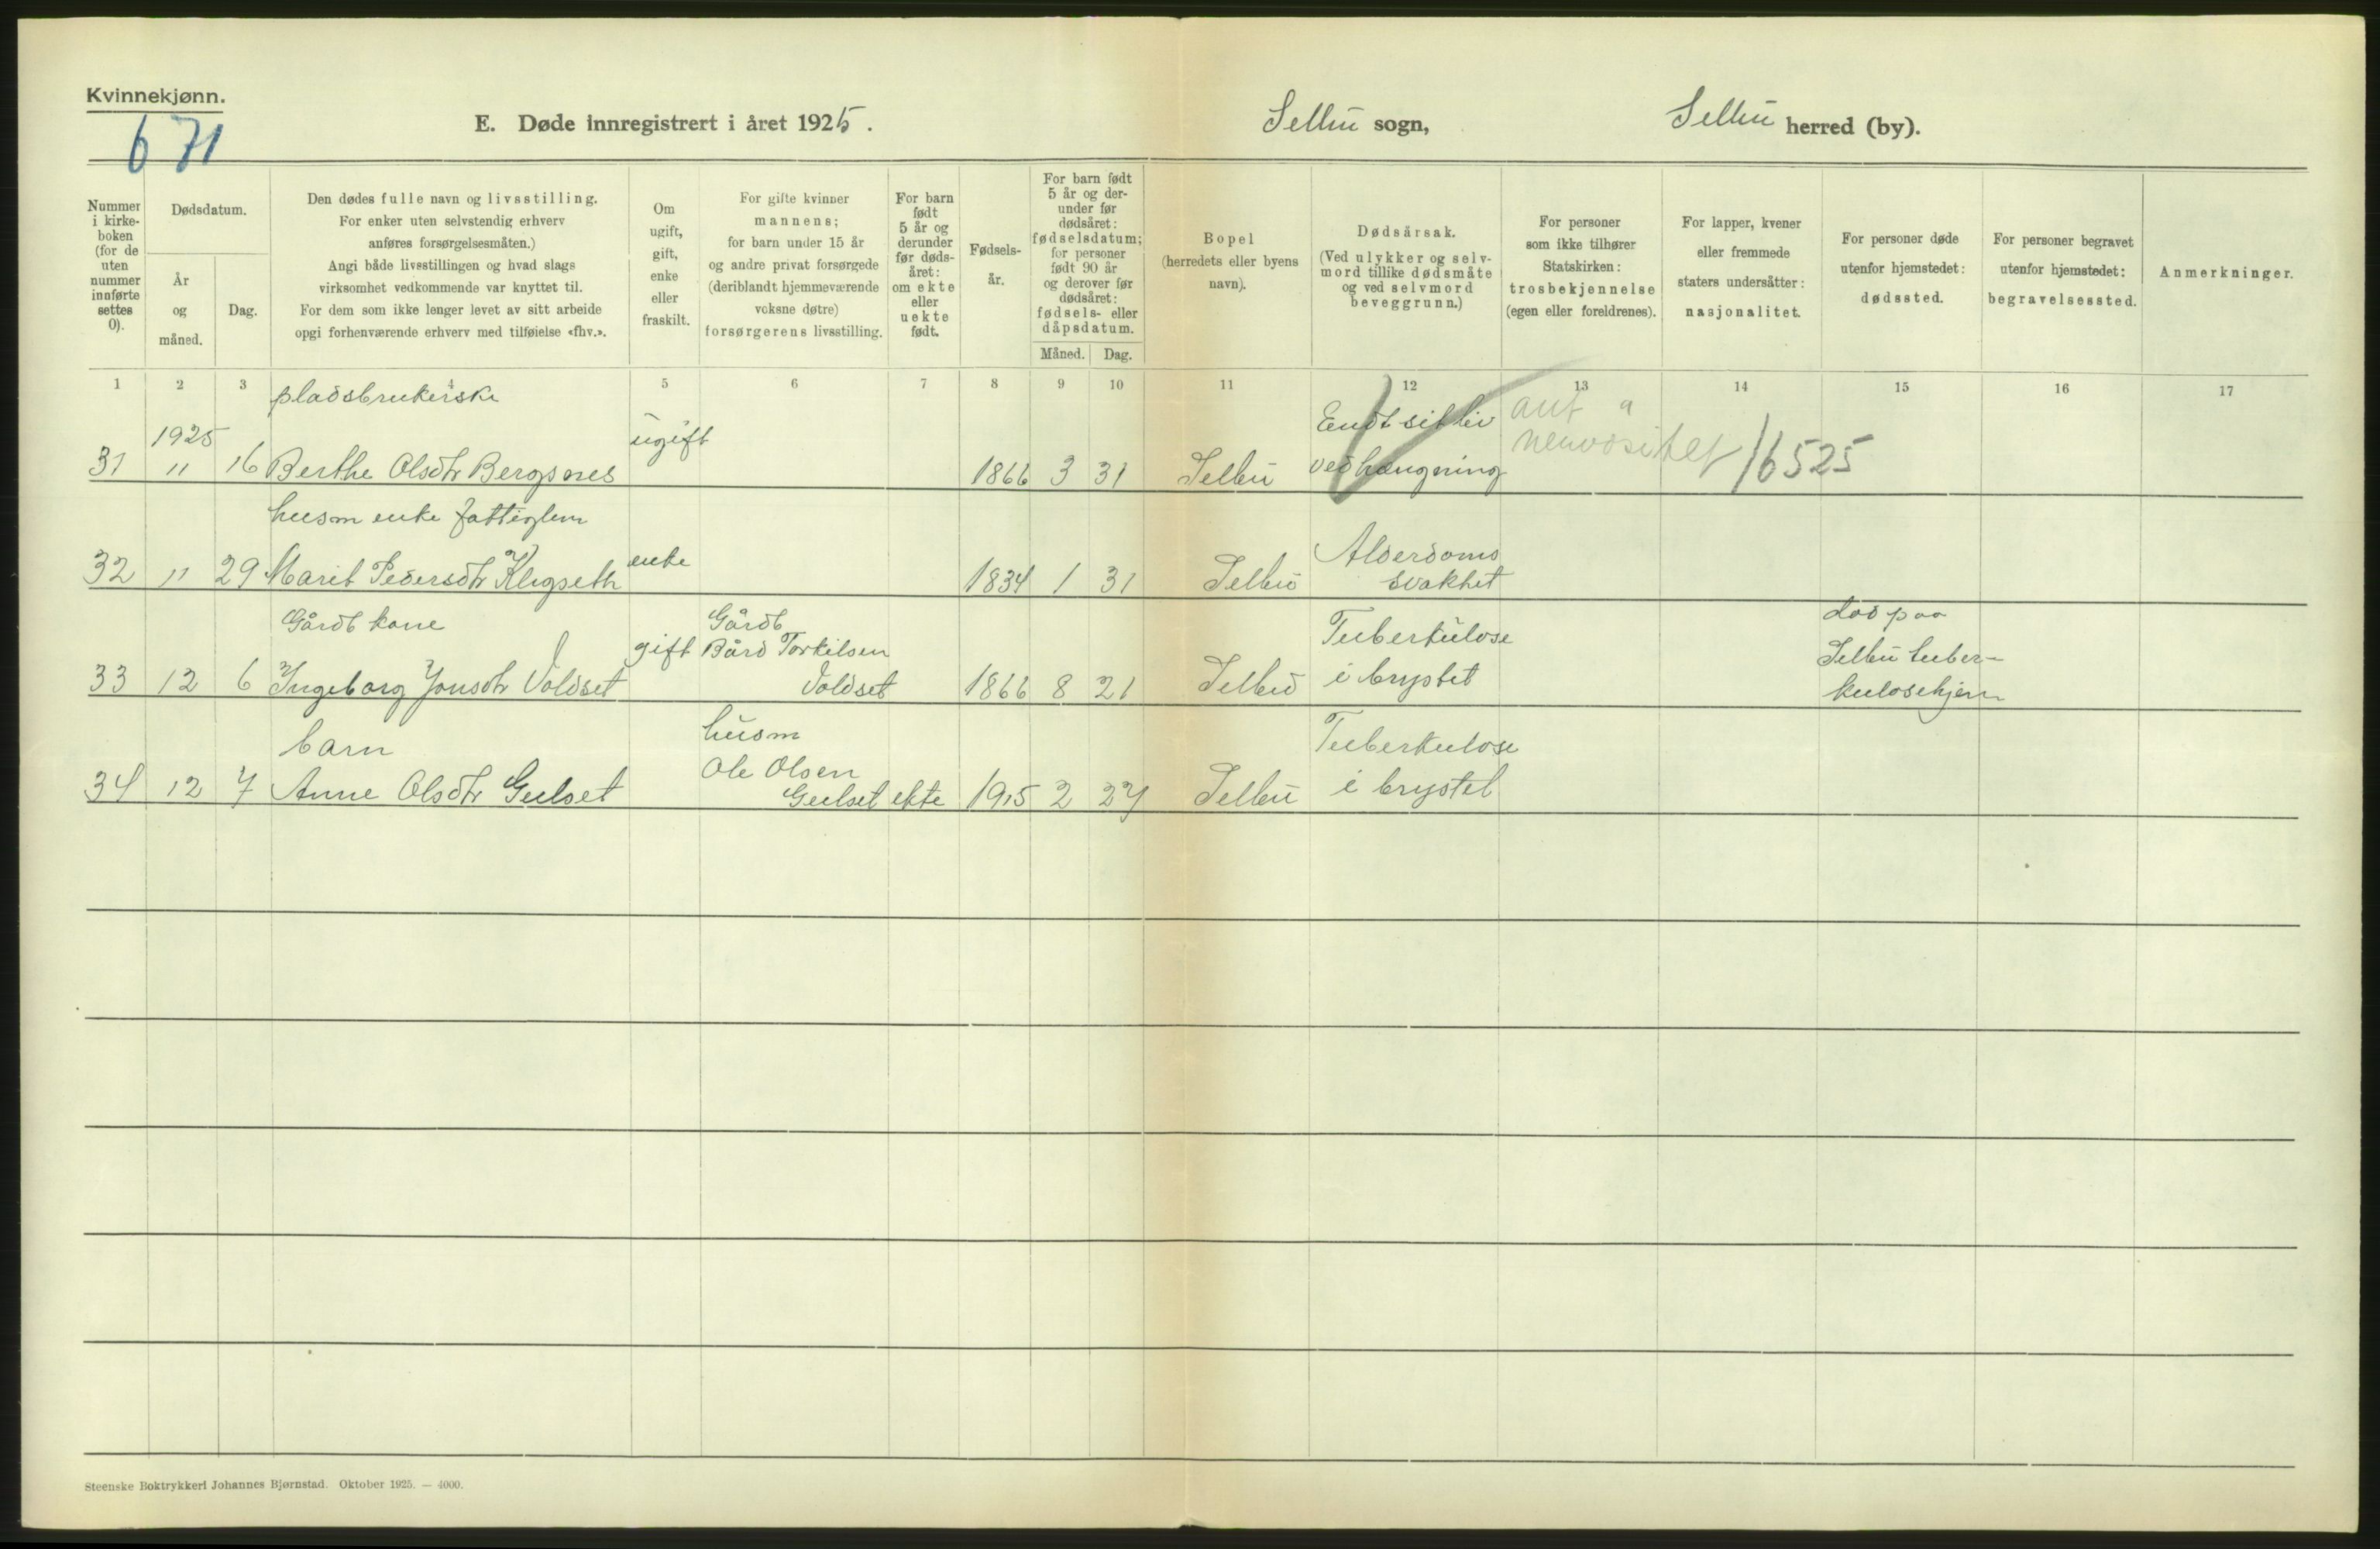 Kvinnekjønn.
671
E. Døde innregistrert i året 1925.
Selbu sogn,
Selbu herred (by).
Nummer i kirkeboken (for de uten nummer innførte settes 0).
Dødsdatum.
År og måned.
Dag.
Den dødes fulle navn og livsstilling.
For enker uten selvstendig erhverv
anføres forsørgelsesmåten.)
Angi både livsstillingen og hvad slags
virksomhet vedkommende var knyttet til.
For dem som ikke lenger levet av sitt arbeide
opgi forhenværende erhverv med tilføielse «fhv.».
Om
ugift,
gift,
enke
eller
fraskilt.
For gifte kvinner
mannens;
for barn under 15 år
og andre privat forsørgede
(deriblandt hjemmeværende
voksne døtre)
forsørgerens livsstilling.
For barn
født
5 år og
derunder
før døds-
året:
om ekte
eller
uekte
født.
Fødsels-
år.
For barn født
5 år og der-
under før
dødsåret:
fødselsdatum;
for personer
født 90 år
og derover før
dødsåret:
fødsels- eller
dåpsdatum.
Måned.
Dag.
Bopel
(herredets eller byens
navn).
Dødsårsak.
(Ved ulykker og selv-
mord tillike dødsmåte
og ved selvmord
beveggrunn.)
For personer
som ikke tilhører
Statskirken:
trosbekjennelse
(egen eller foreldrenes).
For lapper, kvener
eller fremmede
staters undersåtter:
nasjonalitet.
For personer døde
utenfor hjemstedet:
dødssted.
For personer begravet
utenfor hjemstedet:
begravelsessted.
Anmerkninger.
1 2 3 4 5 6 7 8 9 10 11 12 13 14 15 16 17
pladsbrukerske
1925 ugift Endt sit liv
31 11 16 Berthe Olsdtr Bergsnes 1866 3 31 Selbu ved hængning nervøsitet /6525
husm enke fattiglem
enke Alderdoms
32 11 29 Marit Pedersdtr Kligseth 1834 1 31 Selbu svakhet
Gårdb kone Gårdb Tuberkulose død paa
gift Bård Torkilsen Selbu tuber-
33 12 6 Ingeborg Jonsdtr Voldset Voldset 1866 8 21 Selbu i brystet kulosehjem
barn husm Tuberkulose
Ole Olsen
34 12 7 Anne Olsdtr Gulset Gulset ekte 1915 2 27 Selbu i brystet
Steenske Boktrykkeri Johannes Bjørnstad. Oktober 1925. — 4000.